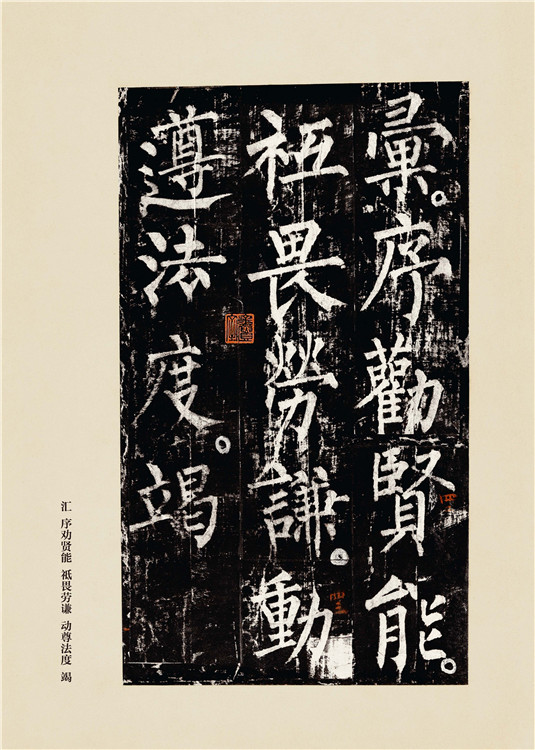 彙。序勸賢能。
祗畏勞謙。動
遵法度。竭
汇 序劝贤能 祗畏劳谦 动尊法度 竭